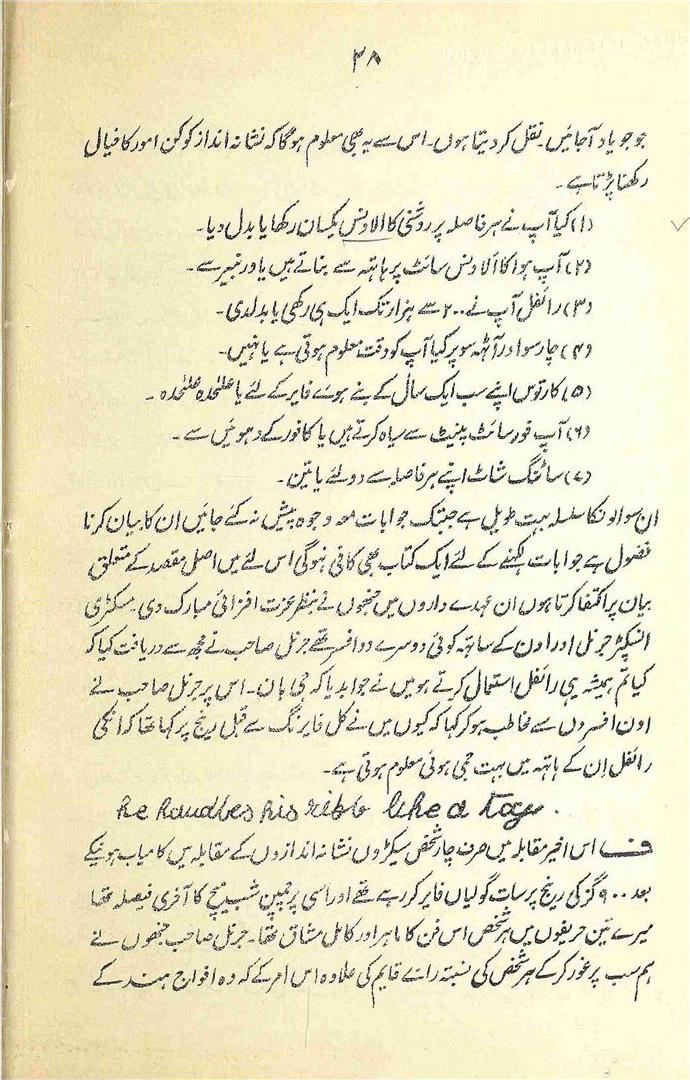 ۳۸
جو جو یاد آجائیں۔ نقل کر دیتا ہوں۔ اس سے یہ بھی معلوم ہوگا کہ نشانہ انداز کو کن امور کا خیال
رکھنا پڑتا ہے۔
(۱) کیا آپ نے ہر فاصلہ پر روشنی کا الاونس یکسان رکھا یا بدل دیا۔
(۲) آپ ہوا کا الاونس سائٹ پر ہاتہہ سے بناتے ہیں یا ورنیر سے۔
(۳) رائفل آپ نے ۲۰۰ سے ہزار تک ایک ہی رکھی یا بدلدی۔
(۴) چارسو اور آٹہہ سو پر کیا آپ کو دقت معلوم ہوتی ہے یا نہیں۔
(۵) کارتوس اپنے سب ایک سال کے بنے ہوے فایر کے لئے یا علٰحدہ علٰحدہ۔
(۶) آپ فورسائٹ پینٹ سے سیاہ کرتے ہیں یا کافور کے دہوئیں سے۔
(۷) سائٹنگ شاٹ اپنے ہر فاصلہ سے دو لئے یا تین۔
ان سوالونکا سلسلہ بہت طویل ہے جبتک جوابات معہ وجوہ پیش نہ کئے جائیں ان کا بیان کرنا
فضول ہے جوابات لکہنے کے لئے ایک کتاب بھی کافی نہوگی اس لئے میں اصل مقصد کے متعلق
بیان پر اکتفا کرتا ہوں ان عہدے داروں میں جنھوں نے بنظر عزت افزائی مبارک دی۔ سکٹری
انسپکٹر جنرل اور اون کے ساتہہ کوئی دوسرے دو افسر تھے جرنل صاحب نے مجھ سے دریافت کیا کہ
کیا تم ہمیشہ یہی رائفل استعمال کرتے ہو میں نے جوابدیا کہ جی ہان۔ اس پر جرنل صاحب نے
اون افسروں سے مخاطب ہو کر کہا کہ کیوں میں نے کل فایرنگ سے قبل رینج پر کہا تھا کہ انکی
رائفل اِن کے ہاتہہ میں بہت جمی ہوئی معلوم ہوتی ہے۔
he handles his rifle like a toy.
ف اس اخیر مقابلہ میں صرف چار شخص سیکڑوں نشانہ اندازوں کے مقابلہ میں کامیاب ہونیکے
بعد ۹۰۰ گز کی رینج پر سات گولیاں فایر کر رہے تھے اور اسی پر چمپین شب میچ کا آخری فیصلہ تھا
میرے تین حریفوں میں ہر شخص اس فن کا ماہر اور کامل مشاق تھا۔ جرنل صاحب جنھوں نے
ہم سب پر غور کر کے ہر شخص کی نسبتہ راے قایم کی علاوہ اس امر کے کہ وہ افواج ہند کے